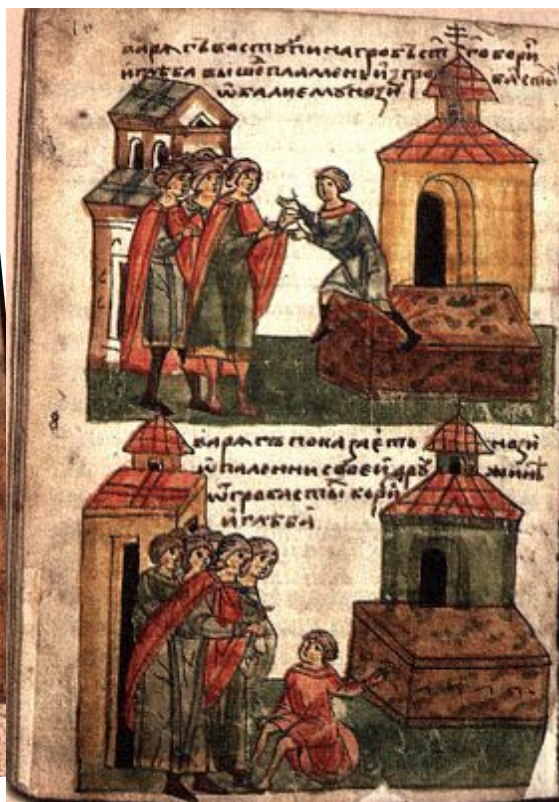 варягъ въступи на гробъ ст҃го бори
и глѣба вышеⷣ пламень и з гро ба с҃ти
ѡпали емꙋ нозѣ
варягъ показаеть нозѣ
ѡпаленни своеи дрꙋ жинѣ
ѿ гроба с҃ты бори
и глѣба